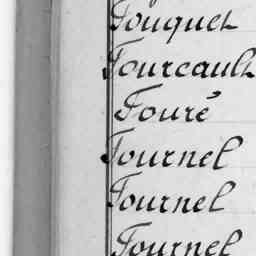 Fouquet
Fourcault
Fouré
Fournel
Fournel
Fournel